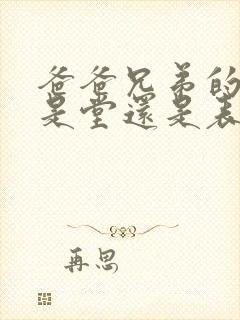 爸爸兄弟的
是堂還是表
再思